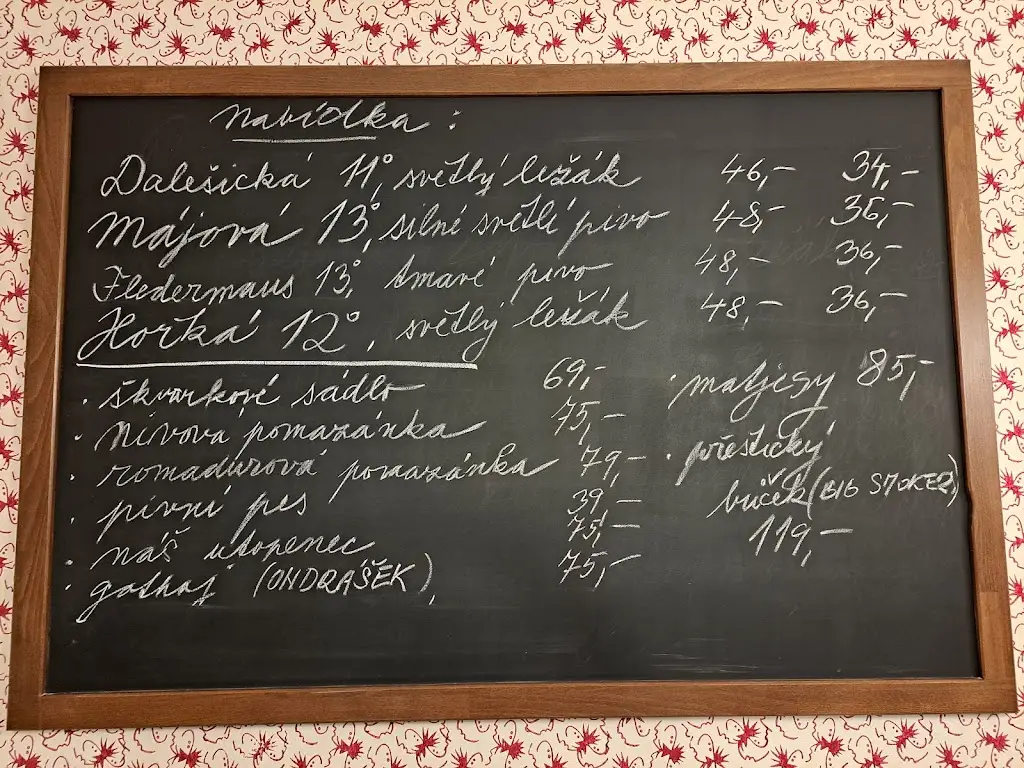 nabídka:
Dalešická 11°, světlý ležák 46,- 34,-
Májová 13°, silné světlé pivo 48,- 36,-
Fledermaus 13°, tmavé pivo 48,- 36,-
Hořká 12°, světlý ležák 48,- 36,-
· škvarkové sádlo 69,-
· nivová pomazánka 75,-
· romadúrová pomazánka 79,-
· pivní pes 39,-
· náš utopenec 75,-
· gothaj (ONDRÁŠEK), 75,-
· matjesy 85,-
· přeštický
bůček (BIG SMOKEZ)
119,-